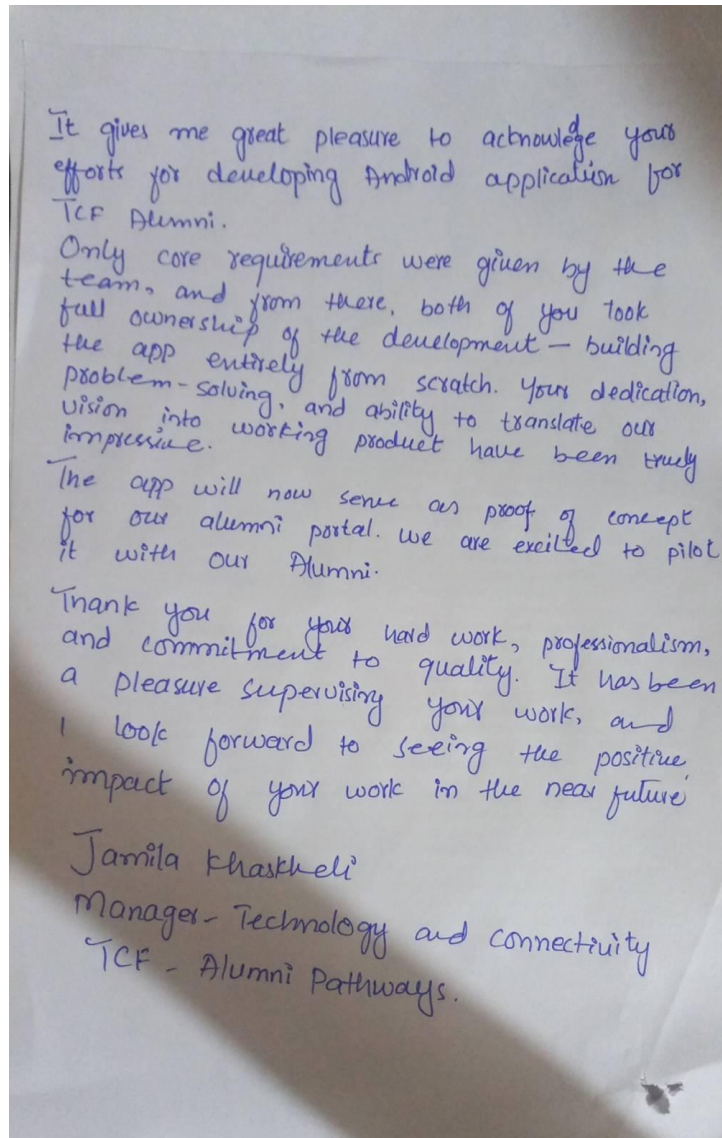 It gives me great pleasure to acknowledge your
efforts for developing Android application for
TCF Alumni.
Only core requirements were given by the
team, and from there, both of you took
full ownership of the development — building
the app entirely from scratch. Your dedication,
problem-solving, and ability to translate our
vision into working product have been truly
impressive.
The app will now serve as proof of concept
for our alumni portal. We are excited to pilot
it with our Alumni.
Thank you for your hard work, professionalism,
and commitment to quality. It has been
a pleasure supervising your work, and
I look forward to seeing the positive
impact of your work in the near future
Jamila Khaskheli
Manager - Technology and Connectivity
TCF - Alumni Pathways.